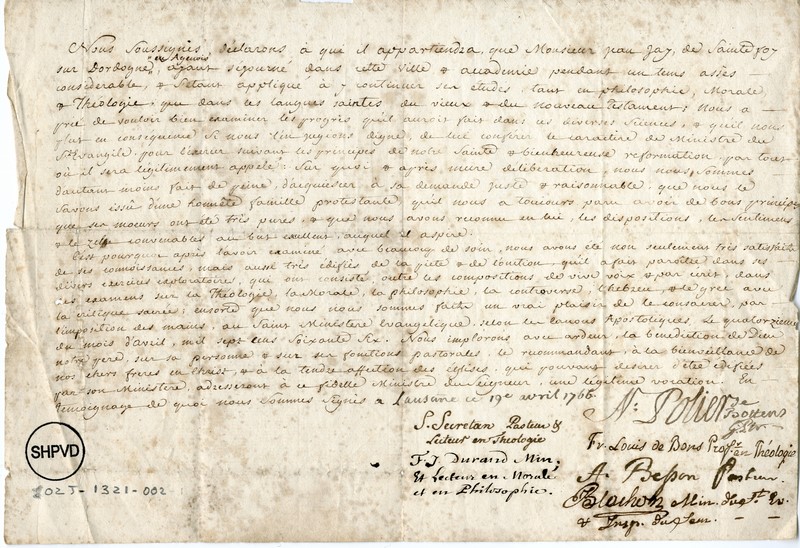 Nous Soussignés, déclarons à qui il appartiendra, que Monsieur Jean Jay, de Sainte foy
sur Dordogne, en Agenois, ayant séjourné dans cette Ville & académie pendant un tems assés
considerable, & s'étant appliqué à y continuer ses études, tant en philosophie, Morale,
& Théologie, que dans les langues saintes du vieux & du nouveau testament; Nous a
prié de vouloir bien examiner les progrès qu'il auroit fait dans ces diverses sciences, & qu'il nous
plut en consequence si nous l'en jugeons digne, de lui conférer le caractère de Ministre du
St Evangile, pour l'exercer suivant les principes de notre Sainte & bienheureuse réformation, par tout
où il sera légitimement appelé: Sur quoi & après mure délibération, nous nous sommes
d'autant moins fait de peine, d'acquiescer à sa demande juste & raisonnable, que nous le
savons issu d'une honnête famille protestante, qu'il nous a toujours paru avoir de bons principes
que ses moeurs ont de très pures, & que nous avons reconnu en lui, les dispositions, les sentimens
& le zèle convenables au but excellent, auquel il aspire.
C'est pourquoi après l'avoir examiné, avec beaucoup de soin, nous avons été non seulement très satisfaits
de ses connoissances, mais aussi très édifiés de la piété & de l'onction qu'il a fait paroître dans ses
divers exercices exploratoires, qui ont consisté, outre les compositions de vive voix & par écrit, dans
les examens sur la Théologie, la Morale, la philosophie, la controverse, l'hebreu & le grec avec
la critique sacrée; ensorte que nous nous sommes faits un vrai plaisir de le consacrer, par
l'imposition des mains, au Saint Ministère évangelique, selon les canons Apostoliques, Le quatorzieme
du mois d'avril, mil sept cens soixante six. Nous implorons avec ardeur, la bénédiction de Dieu
notre père, sur sa personne & sur ses fonctions pastorales, le recommandant, à la bienveillance de
nos chers freres en Christ, & à la tendre affection des églises, qui pouvant désirer d'être édifiées
par son Ministère, adresseront à ce fidelle Ministre du Seigneur, une légitime vocation. En
témoignage de quoi nous sommes signés à Lausanne ce 19e avril 1766.
N. Polier de
Bottens
S. Secretan Pasteur &
Lecteur en Theologie
Fr. Louis de Bons Profr. en Théologie
F. J. Durand Min.
Et Lecteur en Morale
et en Philosophie.
A. Besson Pasteur.
Blachon Min. du St. Ev.
&
SHPVD
2025-1321-002